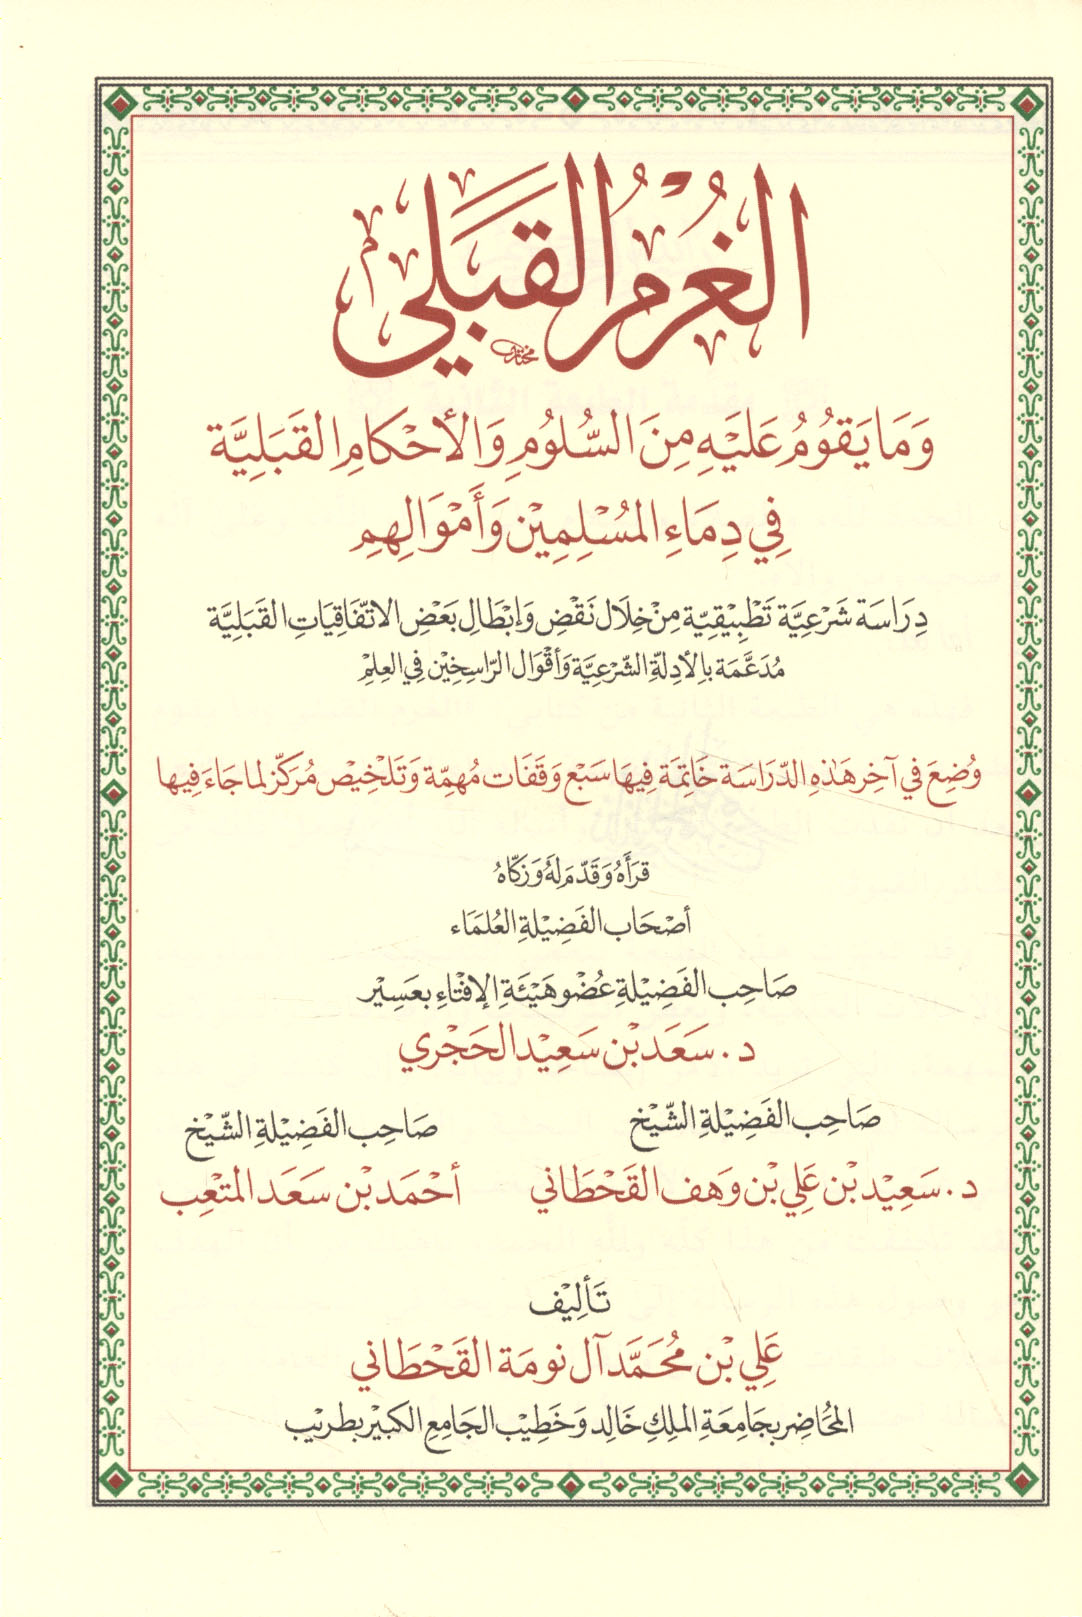 الغُرْمُ القَبَلي
مختار
وَمَا يَقُومُ عَلَيْهِ مِنَ السُّلُومِ وَالأَحْكَامِ القَبَلِيَّة
فِي دِمَاءِ المُسْلِمِيْن وَأَمْوَالِهِم
دِرَاسَة شَرْعِيَّة تَطْبِيْقِيَّة مِنْ خِلَال نَقْضِ وَإبْطَالِ بَعْضِ الاتّفَاقِيَاتِ القَبَلِيَّة
مُدَعَّمَة بِالأدِلةِ الشَّرْعِيَّة وَأقْوَال الرّاسِخِيْن فِي العِلِم
وُضِعَ فِي آخِر هَذِهِ الدِّرَاسَة خَاتِمَة فِيهَا سَبْع وَقَفَات مُهِمّة وَتَلْخِيْص مُرَكّز لما جَاءَ فِيها
قرَأَهُ وَقَدّم لَهُ وَزكّاهُ
أصْحَاب الفَضِيلَةِ العُلَمَاء
صَاحِب الفَضِيلَةِ عُضْو هَيْئَةِ الإفْتَاءِ بعَسِيْر
د. سَعَد بْن سَعِيْد الحَجْري
صَاحِب الفَضِيْلَةِ الشّيْخ
صَاحِب الفَضِيْلَةِ الشّيْخ
د. سَعِيْد بْن عَلي بْن وَهف القَحْطَاني
أحْمَد بْن سَعَد المتْعِب
تَأليْف
عَلي بْن مُحَمَّد آل نومَة القَحْطَاني
المحُاضِر بجَامِعَة الملِكِ خَالِد وَخَطِيْب الجَامِعِ الكَبيْر بطريْب